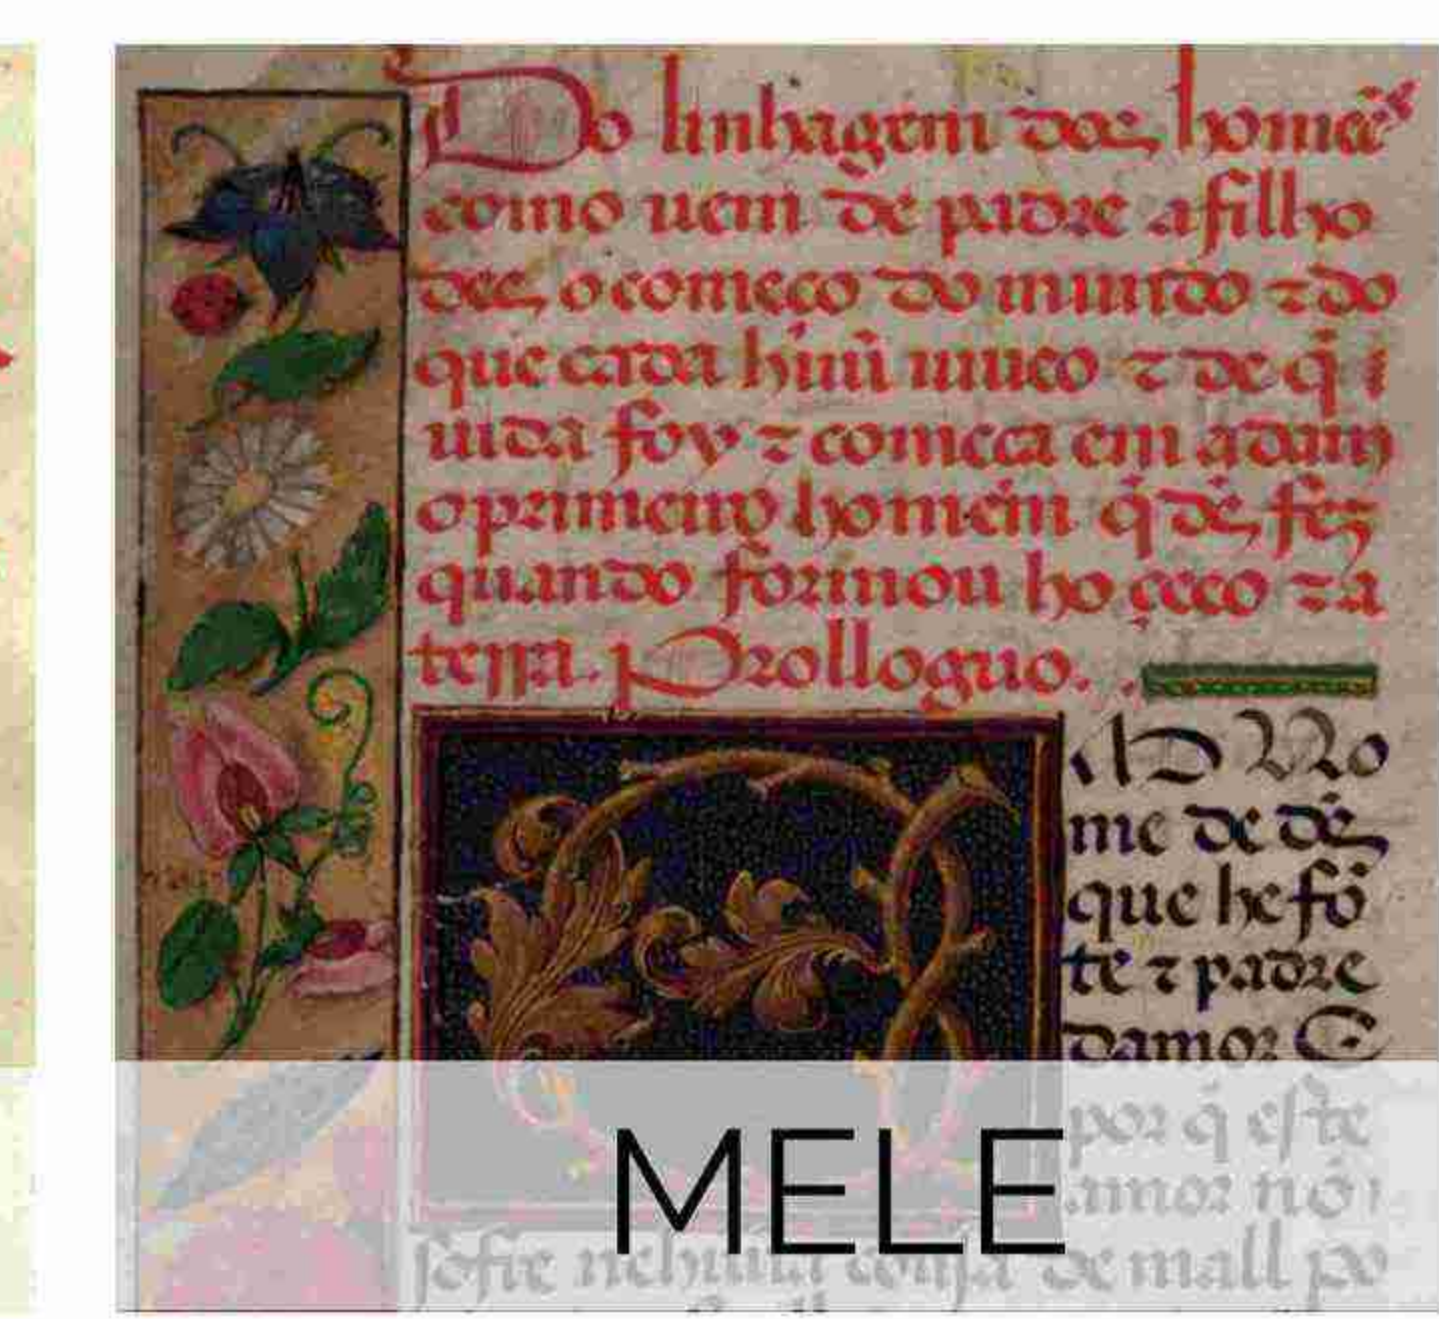 Do linhagem dos homeẽs
como uem de padre a filho
des, o começo do mundo ⁊ do
que cada huũ uiueo ⁊ de q̃ i
uida foy ⁊ comeca em adam
o primeiro homem q̃ ds̃, fez
quando formou ho çeeo ⁊ a
terra. Prolloguo.
No
me de ds̃
que he fõ
te ⁊ padre
damor E
por q̃ este
amor nõ
sofre nehuũa cousa de mall po
MELE